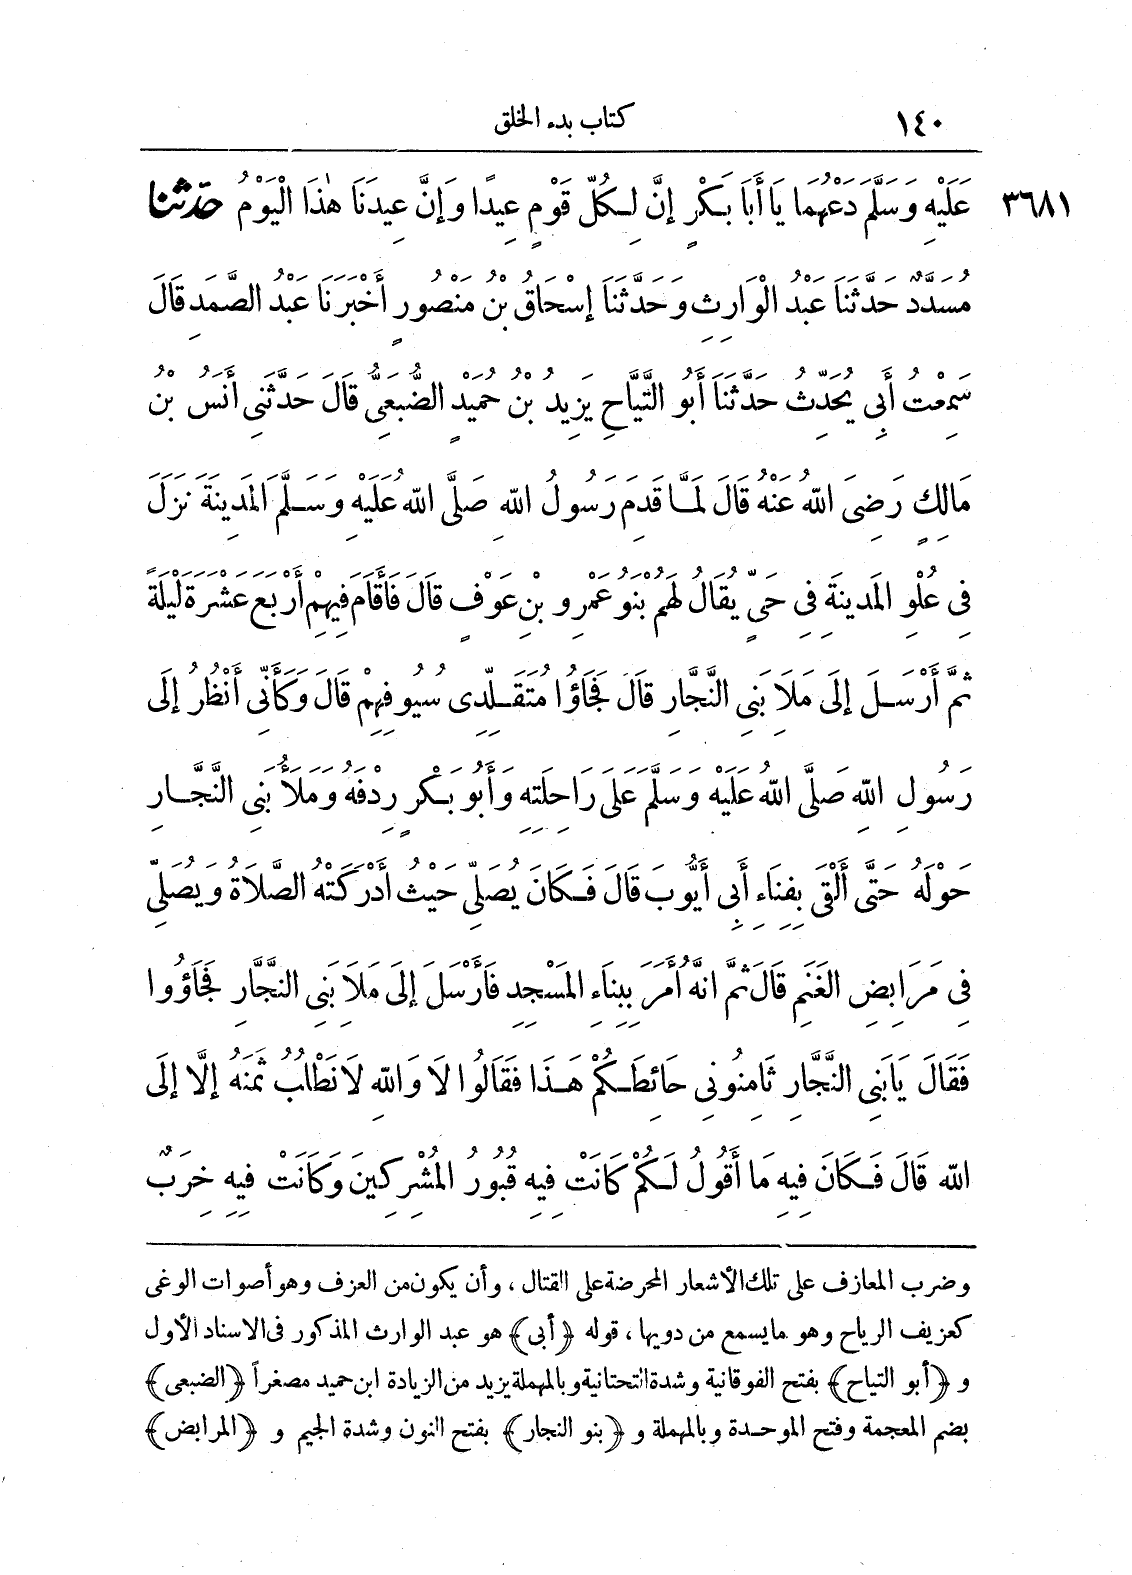 ١٤٠ كتاب بدء الخلق
٣٦٨١ عَلَيْهِ وَسَلَّمَ دَعْهُمَا يَا أَبَا بَكْرٍ إِنَّ لِكُلِّ قَوْمٍ عِيدًا وَإِنَّ عِيدَنَا هٰذَا الْيَوْمُ حَدَّثَنَا
مُسَدَّدٌ حَدَّثَنَا عَبْدُ الْوَارِثِ وَحَدَّثَنَا إِسْحَاقُ بْنُ مَنْصُورٍ أَخْبَرَنَا عَبْدُ الصَّمَدِ قَالَ
سَمِعْتُ أَبِي يُحَدِّثُ حَدَّثَنَا أَبُو التَّيَّاحِ يَزِيدُ بْنُ حُمَيْدٍ الضُّبَعِيُّ قَالَ حَدَّثَنِي أَنَسُ بْنُ
مَالِكٍ رَضِيَ اللهُ عَنْهُ قَالَ لَمَّا قَدِمَ رَسُولُ اللهِ صَلَّى اللهُ عَلَيْهِ وَسَلَّمَ الْمَدِينَةَ نَزَلَ
فِي عُلْوِ الْمَدِينَةِ فِي حَيٍّ يُقَالُ لَهُمْ بَنُو عَمْرِو بْنِ عَوْفٍ قَالَ فَأَقَامَ فِيهِمْ أَرْبَعَ عَشْرَةَ لَيْلَةً
ثُمَّ أَرْسَلَ إِلَى مَلَإِ بَنِي النَّجَّارِ قَالَ فَجَاؤُا مُتَقَلِّدِي سُيُوفِهِمْ قَالَ وَكَأَنِّي أَنْظُرُ إِلَى
رَسُولِ اللهِ صَلَّى اللهُ عَلَيْهِ وَسَلَّمَ عَلَى رَاحِلَتِهِ وَأَبُو بَكْرٍ رِدْفَهُ وَمَلَأُ بَنِي النَّجَّارِ
حَوْلَهُ حَتَّى أَلْقَى بِفِنَاءِ أَبِي أَيُّوبَ قَالَ فَكَانَ يُصَلِّي حَيْثُ أَدْرَكَتْهُ الصَّلَاةُ وَيُصَلِّي
فِي مَرَابِضِ الْغَنَمِ قَالَ ثُمَّ انَّهُ أَمَرَ بِبِنَاءِ الْمَسْجِدِ فَأَرْسَلَ إِلَى مَلَإِ بَنِي النَّجَّارِ فَجَاؤُوا
فَقَالَ يَابَنِي النَّجَّارِ ثَامِنُونِي حَائِطَكُمْ هَذَا فَقَالُوا لَا وَاللهِ لَا نَطْلُبُ ثَمَنَهُ إِلَّا إِلَى
اللهِ قَالَ فَكَانَ فِيهِ مَا أَقُولُ لَكُمْ كَانَتْ فِيهِ قُبُورُ الْمُشْرِكِينَ وَكَانَتْ فِيهِ خِرَبٌ
وضرب المعازف على تلك الأشعار المحرضة على القتال ، وأن يكون من العزف وهو أصوات الوغى
كعزيف الرياح وهو ما يسمع من دويها ، قوله ﴿أبى﴾ هو عبد الوارث المذكور فى الاسناد الأول
و ﴿أبو التياح﴾ بفتح الفوقانية وشدة التحتانية وبالمهملة يزيد من الزيادة ابن حميد مصغراً ﴿الضبعى﴾
بضم المعجمة وفتح الموحدة وبالمهملة و ﴿بنو النجار﴾ بفتح النون وشدة الجيم و ﴿المرابض﴾